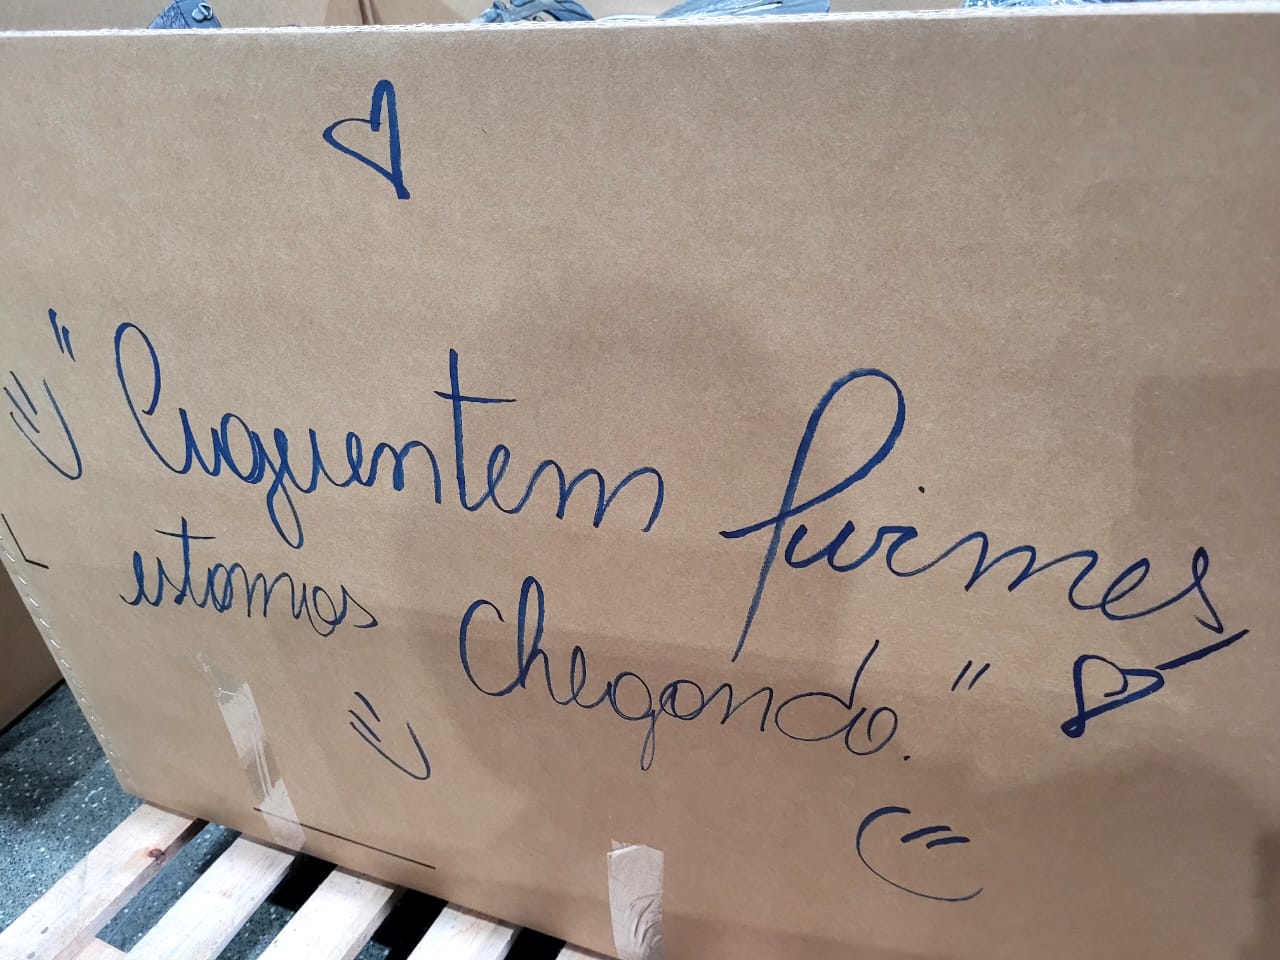 "Aguentem firmes
estamos chegando."